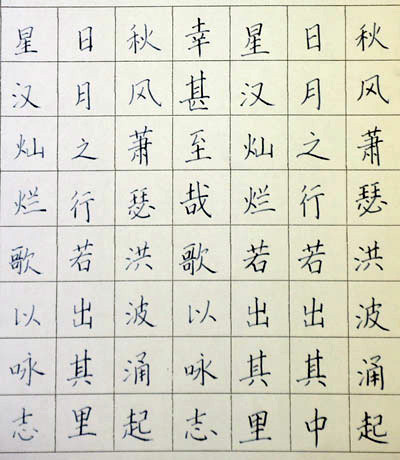 秋风萧瑟洪波涌起
日月之行若出其中
星汉灿烂若出其里
幸甚至哉歌以咏志
秋风萧瑟洪波涌起
日月之行若出其里
星汉灿烂歌以咏志